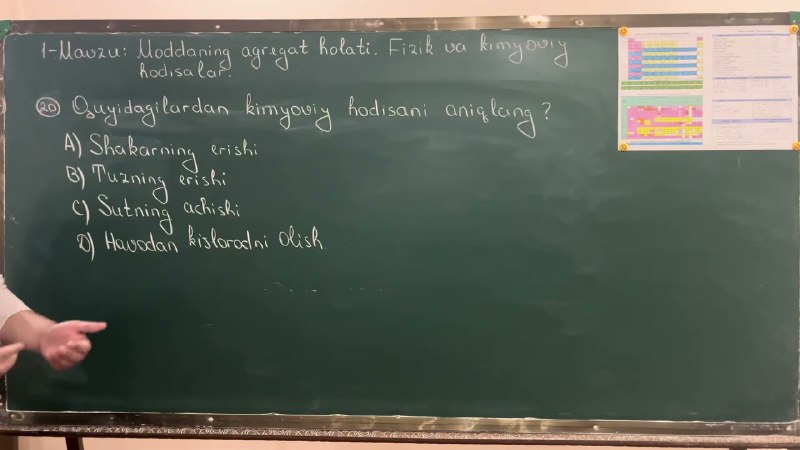 1-Mavzu: Moddaning agregat holati. Fizik va kimyoviy
hodisalar.
20 Quyidagilardan kimyoviy hodisani aniqlang?
A) Shakarning erishi
B) Tuzning erishi
C) Sutning achishi
D) Havodan kislorodni olish.